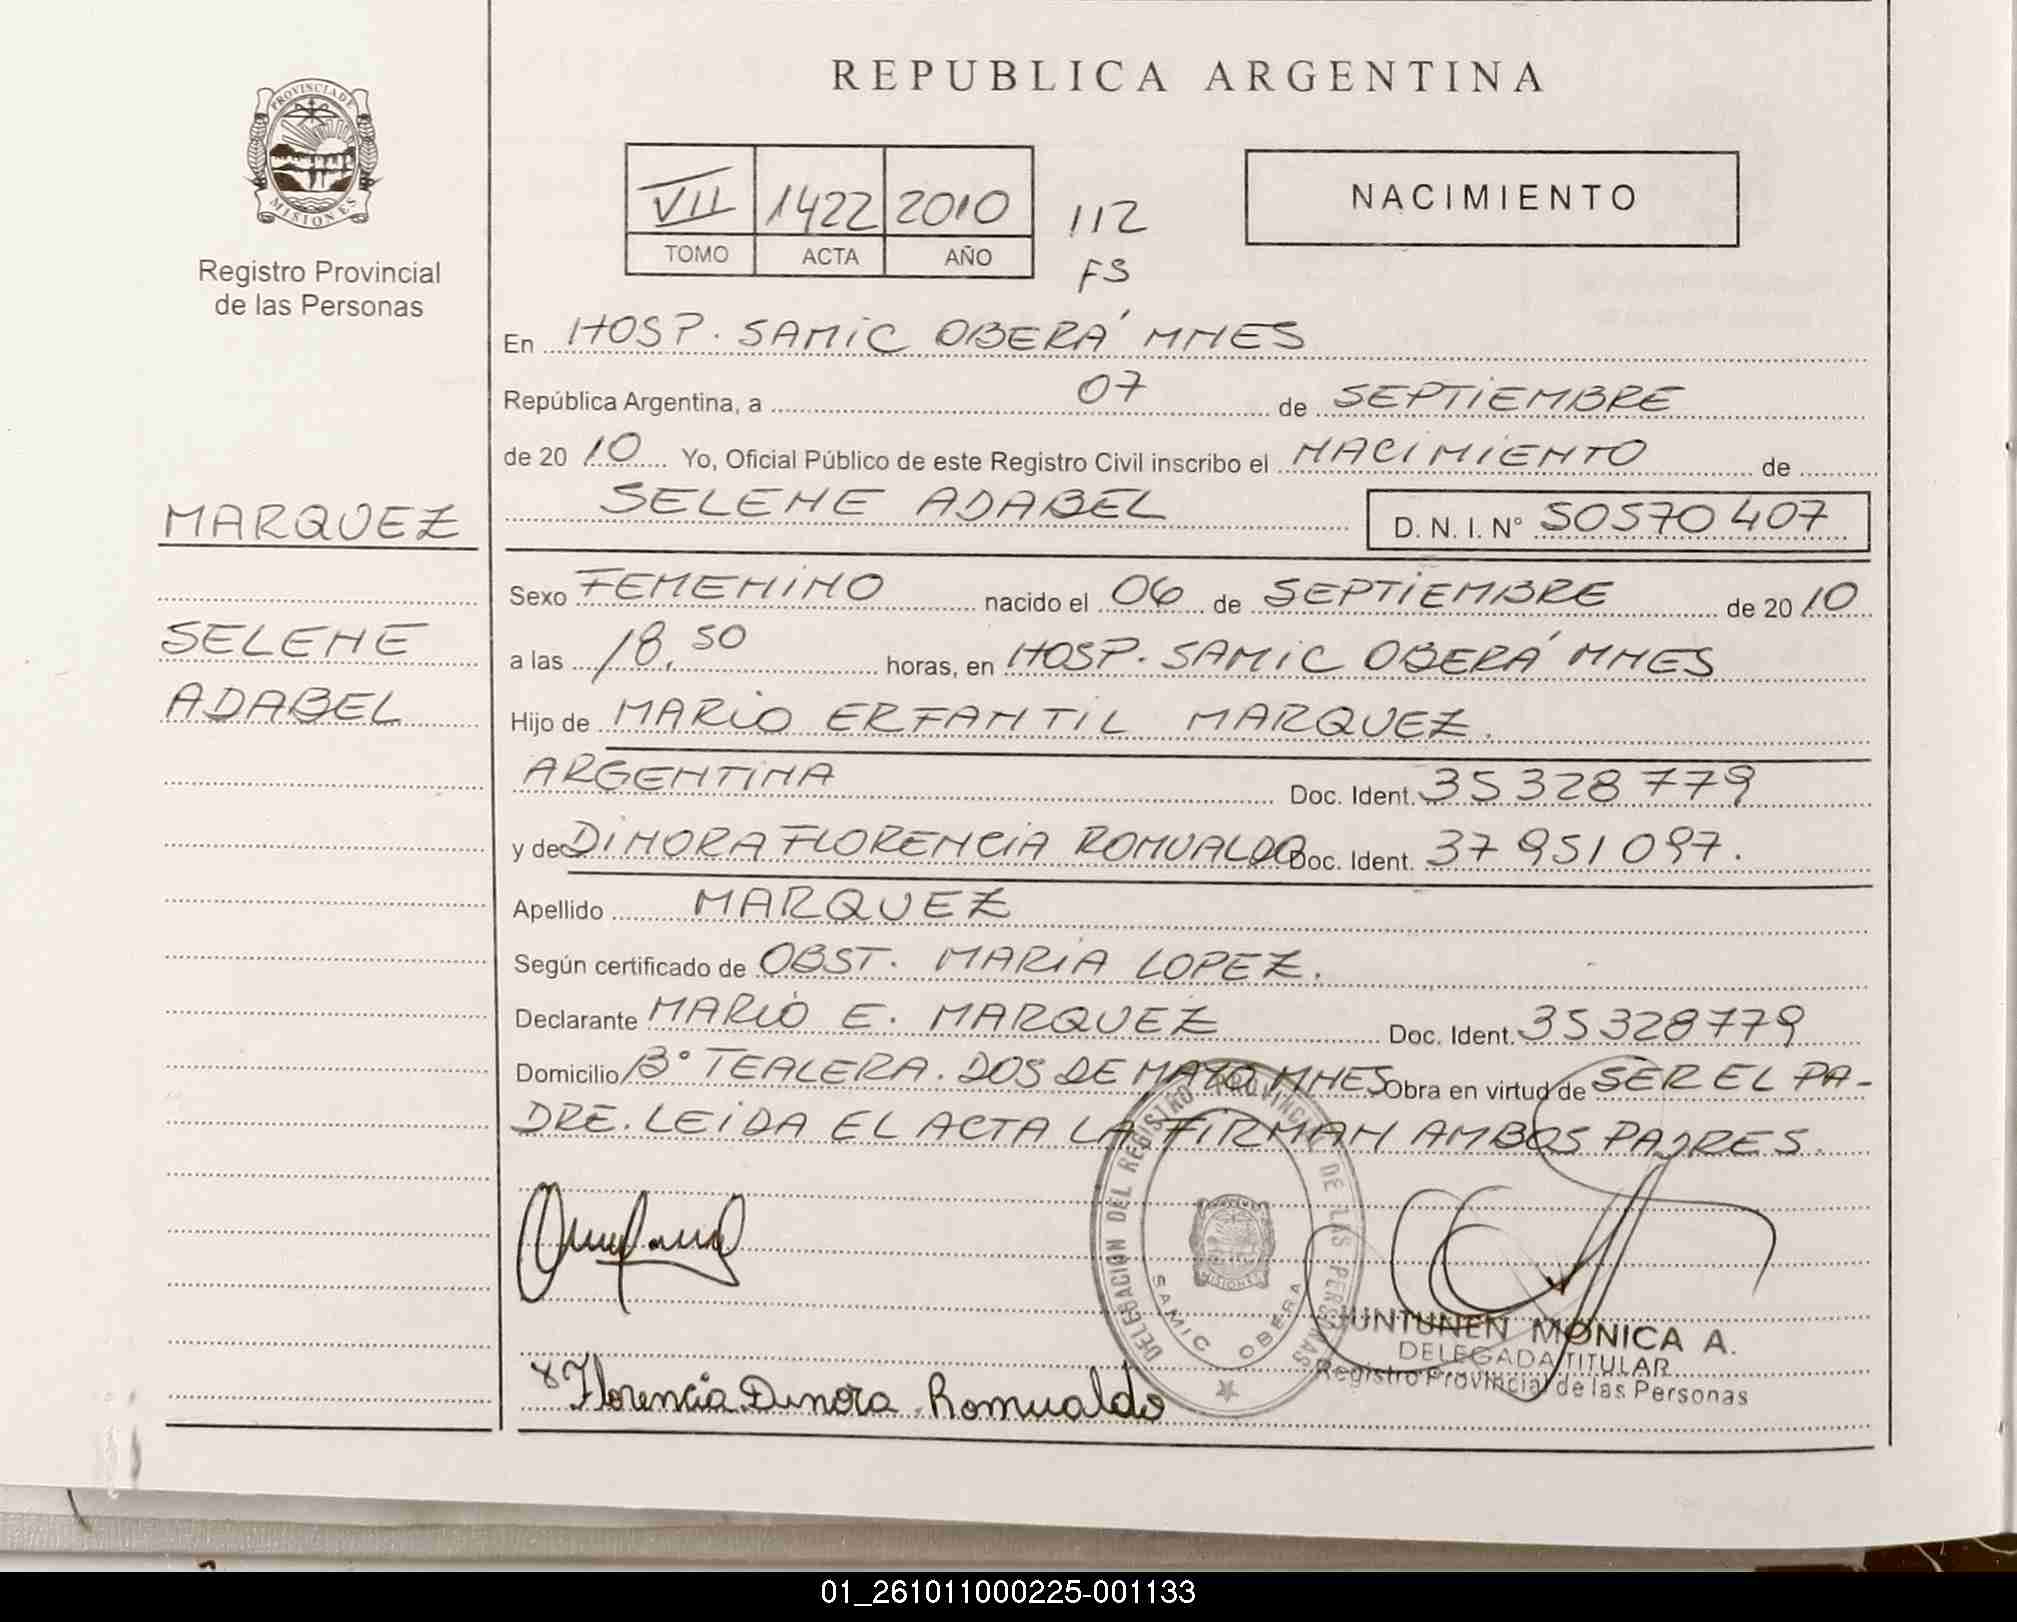 REPUBLICA ARGENTINA
PROVINCIA DE MISIONES
Registro Provincial
de las Personas
VII 1422 2010
TOMO ACTA AÑO
112
FS
NACIMIENTO
En HOSP. SAMIC OBERÁ MNES
República Argentina, a 07 de SEPTIEMBRE
de 2010 Yo, Oficial Público de este Registro Civil inscribo el NACIMIENTO de
SELENE ADABEL D. N. I. N° 50570407
MARQUEZ
SELENE
ADABEL
Sexo FEMENINO nacido el 06 de SEPTIEMBRE de 2010
a las 18,50 horas, en HOSP. SAMIC OBERÁ MNES
Hijo de MARIO ERFANTIL MARQUEZ.
ARGENTINA Doc. Ident. 35328779
y de DINORA FLORENCIA ROMUALDO Doc. Ident. 37951097.
Apellido MARQUEZ
Según certificado de OBST. MARIA LOPEZ.
Declarante MARIO E. MARQUEZ Doc. Ident. 35328779
Domicilio B° TEALERA. DOS DE MAYO MNES Obra en virtud de SER EL PA-
DRE. LEIDA EL ACTA LA FIRMAN AMBOS PADRES.
DELEGACION DEL REGISTRO PROVINCIAL DE LAS PERSONAS
SAMIC OBERA
MISIONES
JUNTUNEN MONICA A.
DELEGADA TITULAR
Registro Provincial de las Personas
Florencia Dinora Romualdo
01_261011000225-001133